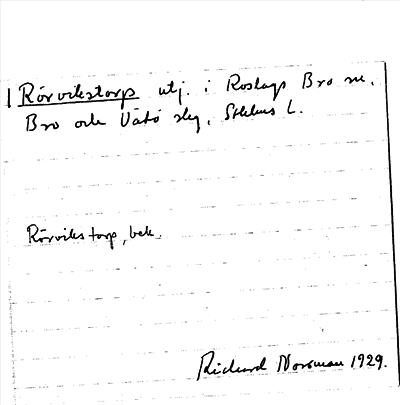 Rörvikstorp utj. i Roslags Bro sn.
Bro och Vätö skg, Sthlms L.
Rörvikstorp, bek.
Richard Norrman 1929.